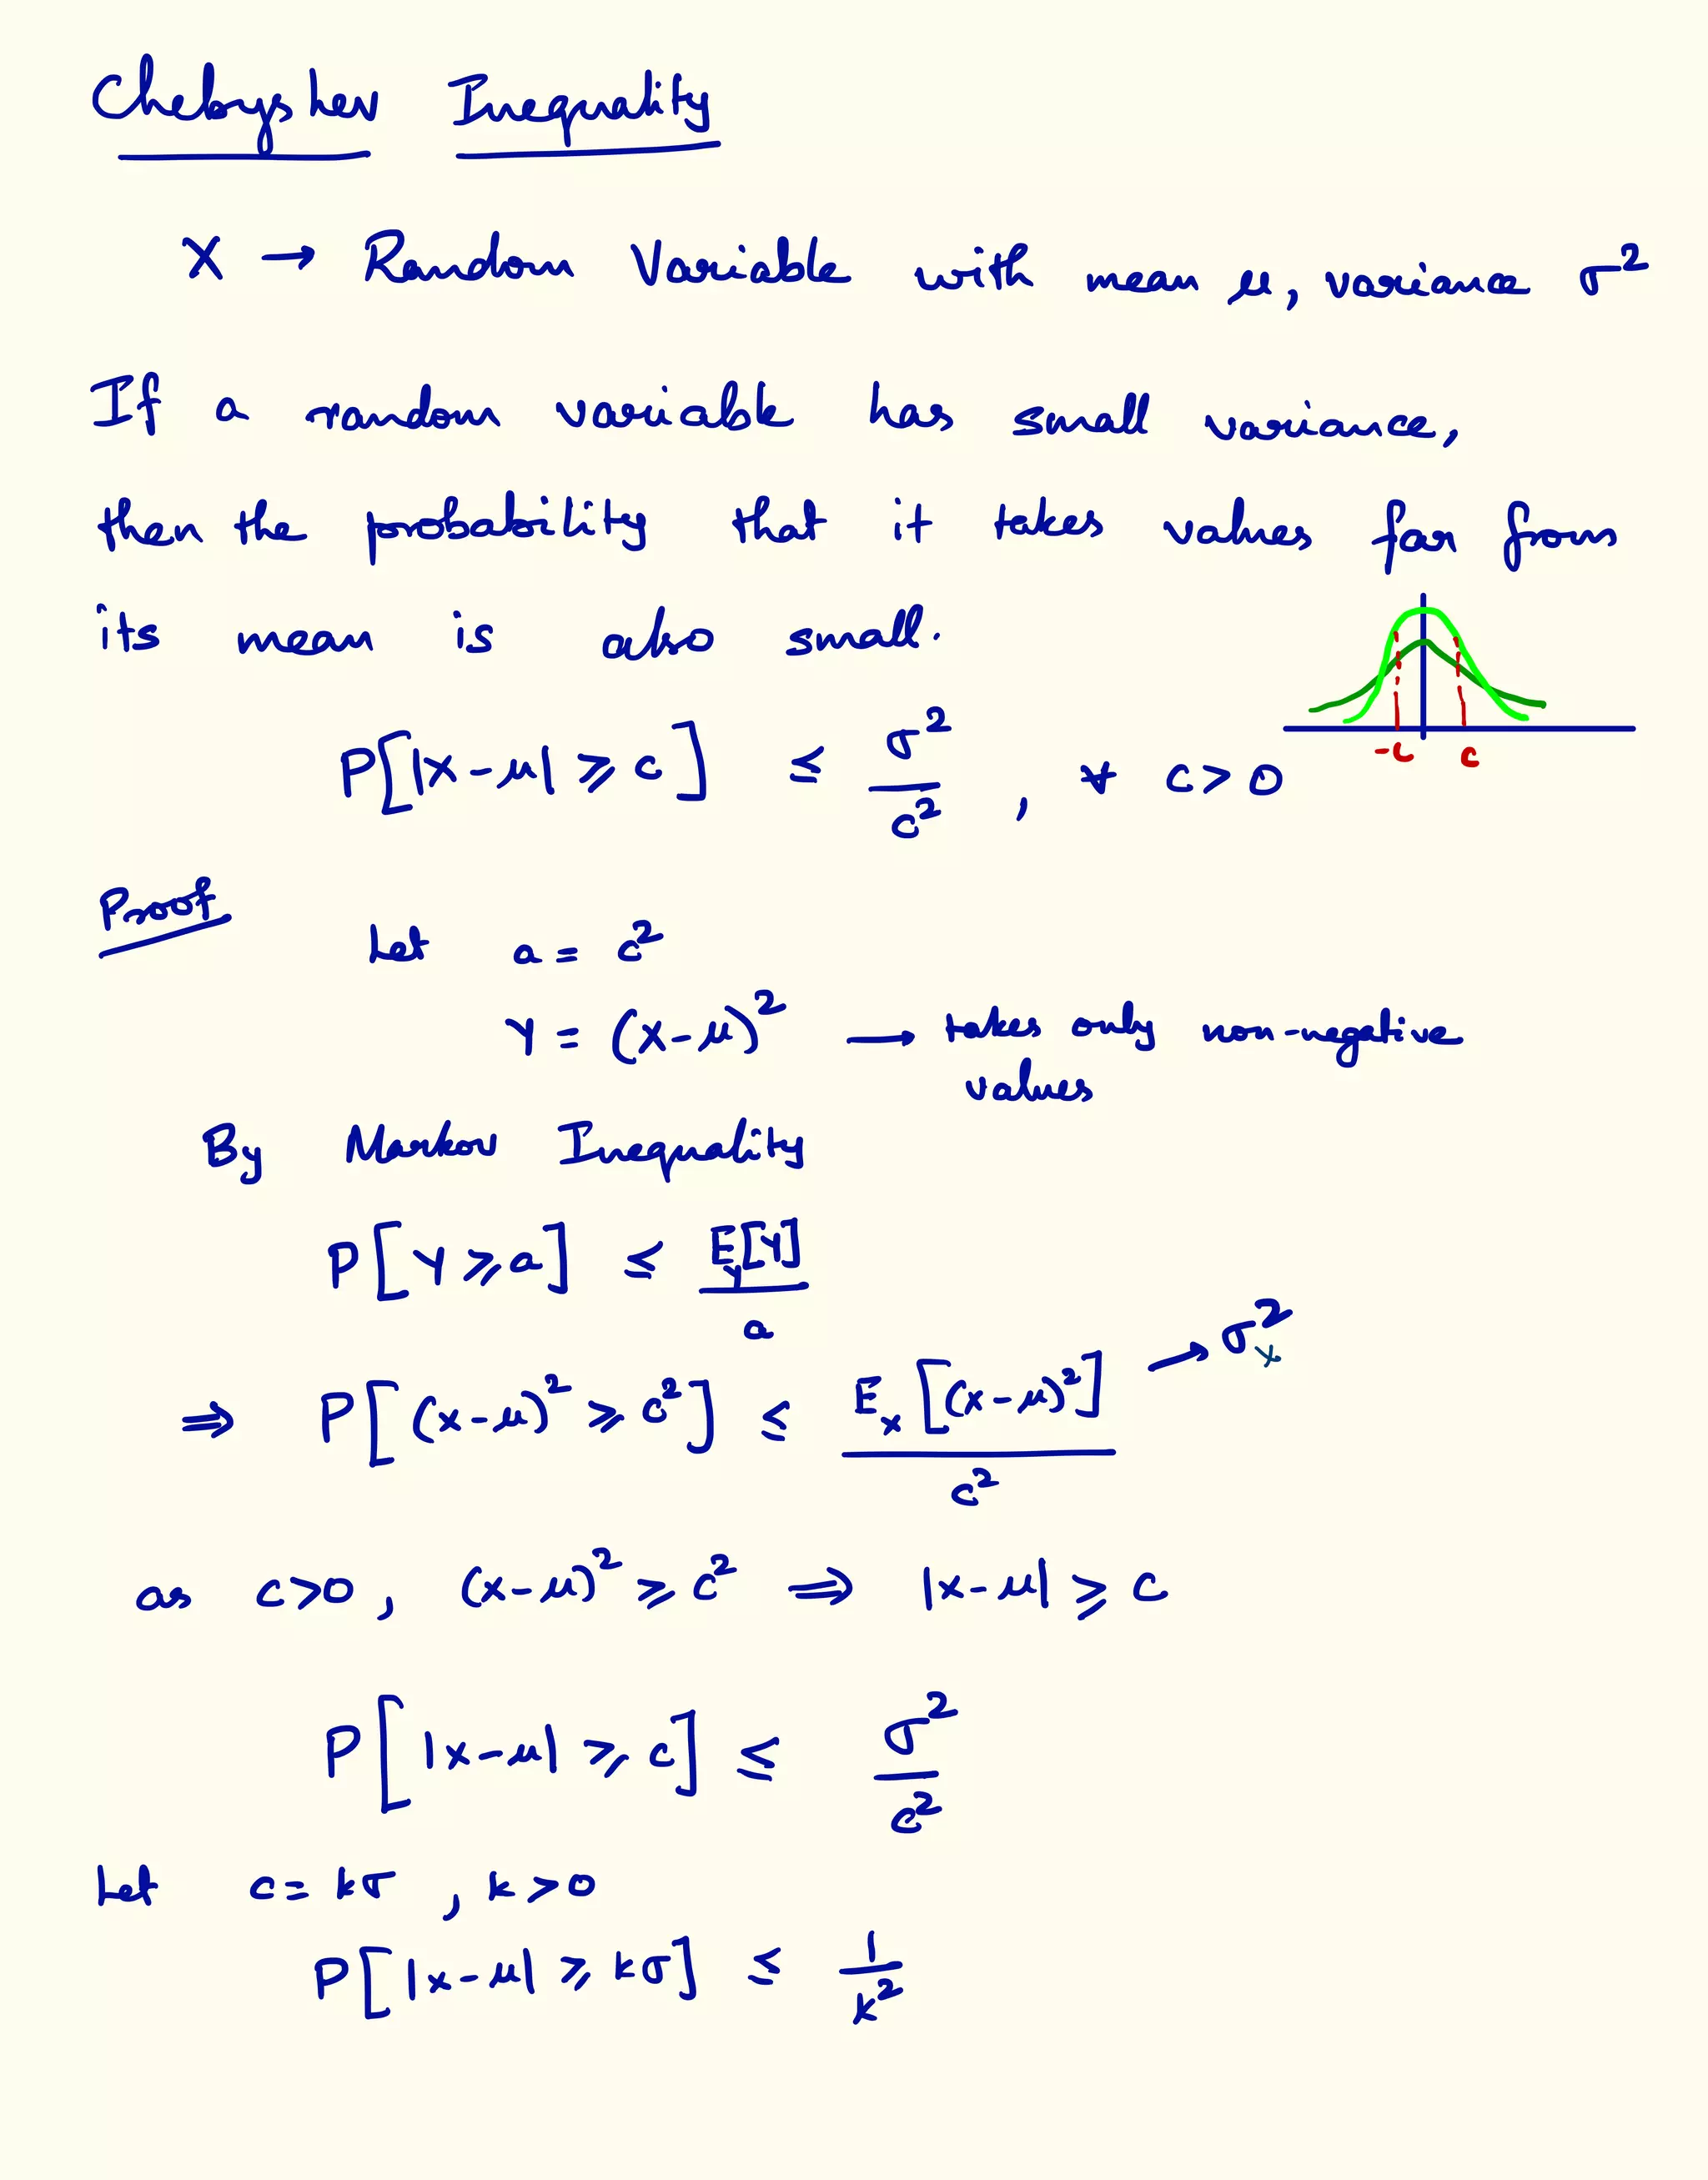 Chebyshev Inequality
X → Random Variable with mean μ, variance σ²
If a random variable has small variance,
then the probability that it takes values far from
its mean is also small.
-c c
P[|X-μ| ⩾ c] ≤ σ²/c² , ∀ c>0
Proof
Let a = c²
Y = (X-μ)² → takes only non-negative
values
By Markov Inequality
P[Y⩾a] ≤ E_Y[Y]/a
⇒ P[(x-μ)² ⩾ c²] ≤ E_x[(x-μ)²]/c² → σ²_x
as c>0, (x-μ)² ⩾ c² ⇒ |x-μ| ⩾ c
P[|x-μ| ⩾ c] ≤ σ²/c²
Let c = kσ , k>0
P[|x-μ| ⩾ kσ] ≤ 1/k²